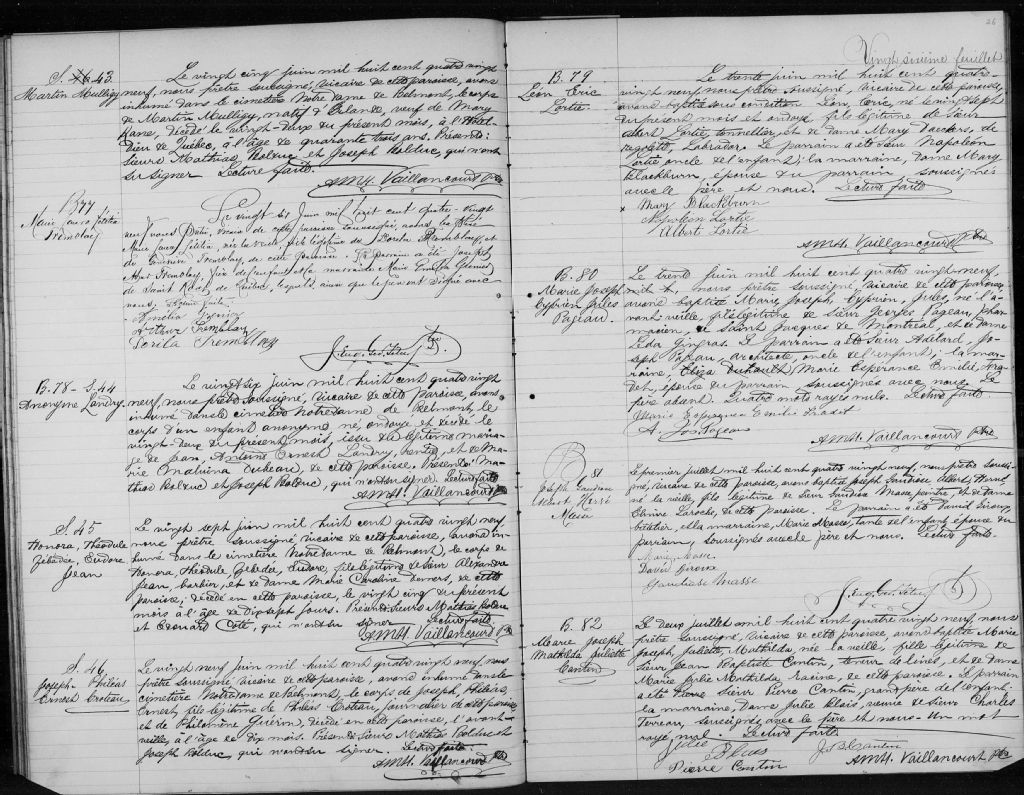 S. 43
Martin Mulligy
Le vingt cinq juin mil huit cent quatre vingt
neuf, nous prêtre soussigné, vicaire de cette paroisse, avons
inhumé dans le cimetière Notre Dame de Belmont, le corps
de Martin Mulligy, natif d'Irlande, veuf de Mary
Kane, décédé le vingt-deux du présent mois, à l'Hôtel-
Dieu de Québec, à l'âge de quarante trois ans. Présents:
Sieurs Mathias Bolduc et Joseph Bolduc, qui n'ont
su signer Lecture faite
AMH. Vaillancourt Ptre
B 77
Marie Laura
Tremblay
Le vingt six Juin mil huit cent quatre-vingt
neuf nous Prêtre, vicaire de cette paroisse soussigné, avons baptisé
Marie Laura, née la veille, fille légitime de Tremblay, et
de Tremblay, de cette paroisse. Le parrain a été Joseph
Tremblay, de l'enfant et la marraine Marie
de Saint Roch de Québec, lesquels, ainsi que le père ont signé avec
nous. Lecture faite
Arthur Tremblay
Tremblay
Ptre
B. 78 - S. 44
Anonyme Landry
Le vingt six juin mil huit cent quatre vingt
neuf, nous prêtre soussigné, vicaire de cette paroisse, avons
inhumé dans le cimetière Notre Dame de Belmont, le
corps d'un enfant anonyme né, ondoyé et décédé le
vingt-deux du présent mois, issu du légitime maria-
ge de Jean Antoine Ernest Landry, rentier, et de Ma-
rie Malvina Dubeau, de cette paroisse. Présents: Ma-
thias Bolduc et Joseph Bolduc, qui n'ont su signer. Lecture faite
AMH. Vaillancourt Ptre
S. 45
Honora, Théodule
Zébédée, Eudore
Jean
Le vingt sept juin mil huit cent quatre vingt neuf
nous prêtre soussigné vicaire de cette paroisse, avons in-
humé dans le cimetière Notre Dame de Belmont, le corps de
Honora, Théodule Zébédée, Eudore, fils légitime de Sieur Alexandre
Jean, barbier, et de Dame Marie Caroline Demers, de cette
paroisse, décédé en cette paroisse, le vingt cinq du présent
mois à l'âge de dix sept jours. Présents: Sieurs Mathias Bolduc
et Edouard Côté, qui n'ont su signer Lecture faite
AMH. Vaillancourt Ptre
S. 46
Joseph - Philéas
Ernest Croteau
Le vingt neuf juin mil huit cent quatre vingt neuf, nous
prêtre soussigné, vicaire de cette paroisse, avons inhumé dans le
cimetière Notre Dame de Belmont, le corps de Joseph, Philéas,
Ernest, fils légitime de Philéas Croteau, journalier de cette paroisse
et de Philomène Guérin, décédé en cette paroisse, l'avant-
veille, à l'âge de dix mois. Présents: Sieurs Mathias Bolduc et
Joseph Bolduc, qui n'ont su signer. Lecture faite
AMH. Vaillancourt Ptre
26
Vingt sixième feuillet
B. 79
Léon Eric
Lortie
Le trente juin mil huit cent quatre-
vingt neuf nous prêtre soussigné, vicaire de cette paroisse,
avons baptisé sous condition Léon, Eric, né le vingt sept
du présent mois et ondoyé fils légitime de Sieur
Albert Lortie, tonnellier, et de Dame Mary Dackers, de
Labrador. Le parrain a été Sieur Napoléon
Lortie oncle de l'enfant; la marraine, Dame Mary
Blackburn, épouse du parrain soussignés
avec le père et nous. Lecture faite
x Mary Blackburn
Napoléon Lortie
Albert Lortie
AMH. Vaillancourt Ptre
B. 80
Marie Joseph
Cyprien Jules
Pageau
Le trente juin mil huit cent quatre vingt-neuf,
nous prêtre soussigné, vicaire de cette paroisse,
avons baptisé Marie, Joseph, Cyprien, Jules, né l'a-
vant-veille, fils légitime de Sieur Georges Pageau, phar-
macien, de Saint Jacques de Montréal, et de Dame
Léda Gingras. Le parrain a été Sieur Adélard, Jo-
seph Pageau, architecte, oncle de l'enfant; la mar-
raine, Eliza Dubault, Marie Espérance Emélie,
épouse du parrain, soussignés avec nous. Le
père absent. Quatre mots rayés nuls. Lecture faite
Marie Emilie
A. Jos. Pageau
AMH. Vaillancourt Ptre
B 81
Joseph Gaudiose
Albert Hervé
Masse
Le premier juillet mil huit cent quatre vingt neuf, nous prêtre soussi-
gné, vicaire de cette paroisse, avons baptisé Joseph Gaudiose Albert, Hervé,
né la veille, fils légitime de Sieur Gaudiose Masse peintre, et de Dame
Laroche, de cette paroisse. Le parrain a été David Giroux,
et la marraine, Marie Masse, tante de l'enfant, épouse du
parrain, soussignés avec le père et nous. Lecture faite.
Marie Masse
David Giroux
Gaudiose Masse
B. 82
Marie Joseph
Mathilda Juliette
Cantin
Le deux juillet mil huit cent quatre vingt neuf, nous
prêtre soussigné, vicaire de cette paroisse, avons baptisé Marie
Joseph, Juliette, Mathilda, née la veille, fille légitime de
Sieur Jean Baptiste Cantin, teneur de livres, et de Dame
Marie Julie Mathilda Racine, de cette paroisse. Le parrain
a été Pierre Sieur Pierre Cantin, grand père de l'enfant:
la marraine, Dame Julie Blais, veuve de Sieur Charles
Terreau, soussignés avec le père et nous. Un mot
rayé nul. Lecture faite
Julie Blais
J. B. Cantin
Pierre Cantin
AMH. Vaillancourt Ptre